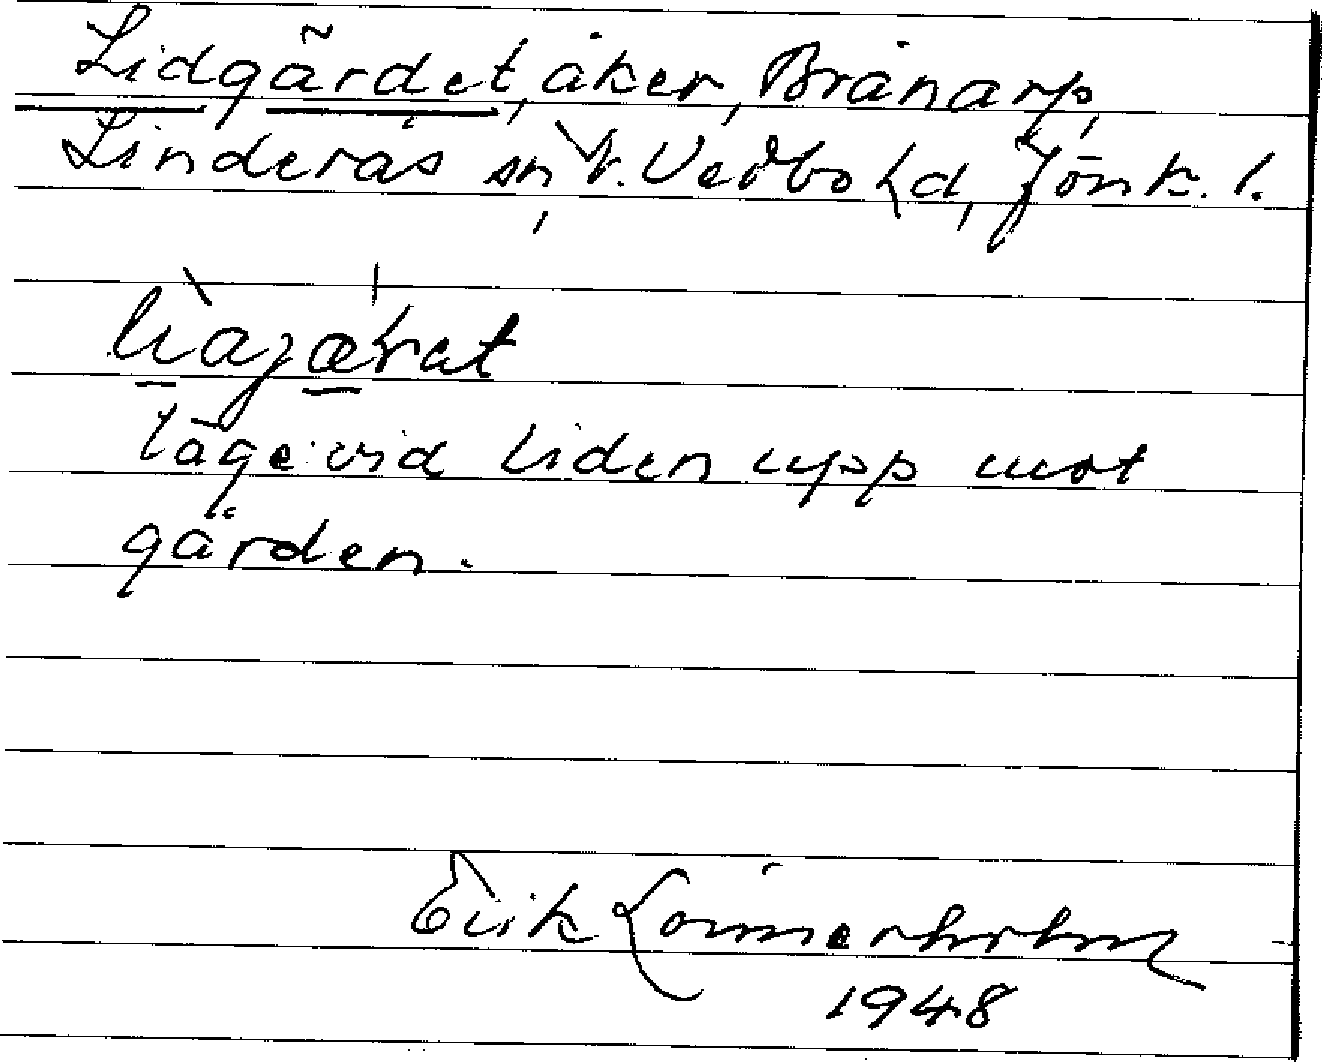 Lidgärdet, åker, Brånarp,
Linderås sn, N. Vedbo hd, Jönk. l.
lìajæ̍rat
läge: vid liden upp mot
gården.
Erik Lönnerholm
1948